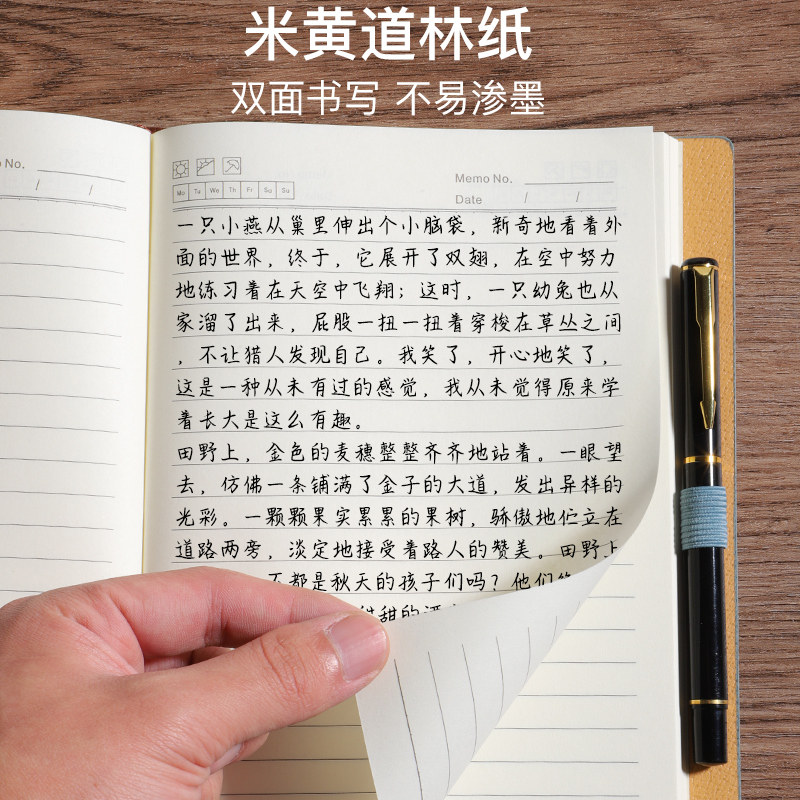 米黄道林纸
双面书写 不易渗墨
No.
/ /
Memo No.
Mo Tu We Th Fr Sa Su
Date / /
一只小燕从巢里伸出个小脑袋，新奇地看着外
面的世界，终于，它展开了双翅，在空中努力
地练习着在天空中飞翔；这时，一只幼兔也从
家溜了出来，屁股一扭一扭着穿梭在草丛之间
，不让猎人发现自己。我笑了，开心地笑了，
这是一种从未有过的感觉，我从未觉得原来学
着长大是这么有趣。
田野上，金色的麦穗整整齐齐地站着。一眼望
去，仿佛一条铺满了金子的大道，发出异样的
光彩。一颗颗果实累累的果树，骄傲地伫立在
道路两旁，淡定地接受着路人的赞美。田野上
不都是秋天的孩子们吗？他们
甜的